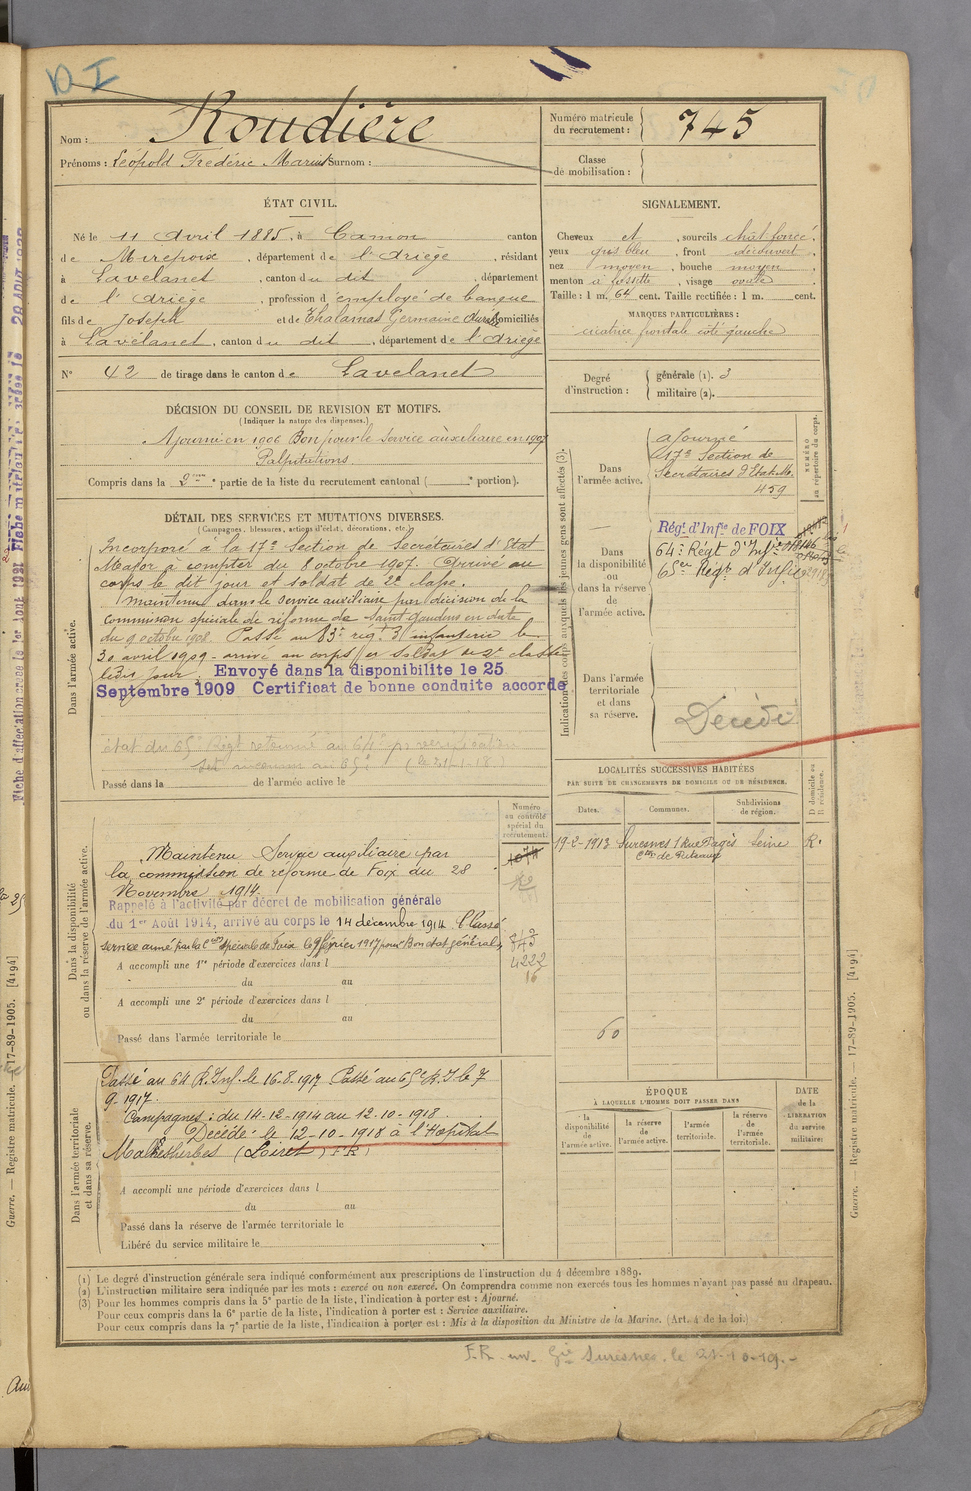 D I
Nom : Roudière
Prénoms : Léopold Frédéric Marius Surnom :
Numéro matricule du recrutement : 745
Classe de mobilisation :
ÉTAT CIVIL.
Né le 11 Avril 1885, à Camon canton
de Mirepoix, département de l'Ariège, résidant
à Lavelanet, canton du dit, département
de l'Ariège, profession d'employé de banque
fils de Joseph et de Thalamas Germaine domiciliés
à Lavelanet, canton du dit, département de l'Ariège
N° 42 de tirage dans le canton de Lavelanet
SIGNALEMENT.
Cheveux et, sourcils chât foncé,
yeux gris bleu, front découvert,
nez moyen, bouche moyen,
menton à fossette, visage ovale
Taille : 1 m. 64 cent. Taille rectifiée : 1 m. cent.
MARQUES PARTICULIÈRES :
cicatrice frontale côté gauche
Degré d'instruction : générale (1). 3
militaire (2).
DÉCISION DU CONSEIL DE REVISION ET MOTIFS.
(Indiquer la nature des dispenses.)
Ajourné en 1906 Bon pour le Service auxiliaire en 1907
Palpitations.
Compris dans la 2e partie de la liste du recrutement cantonal ( portion).
DÉTAIL DES SERVICES ET MUTATIONS DIVERSES.
(Campagnes, blessures, actions d'éclat, décorations, etc.)
Dans l'armée active.
Incorporé à la 17e Section de Secrétaires d'Etat
Major à compter du 8 octobre 1907. Arrivé au
corps le dit jour et soldat de 2e classe.
Maintenu dans le service auxiliaire par décision de la
commission spéciale de réforme de Saint-Gaudens en date
du 9 octobre 1908. Passé au 83e rég. d'infanterie le
30 avril 1909 - arrivé au corps et soldat de 2e classe
le dit jour. Envoyé dans la disponibilite le 25
Septembre 1909 Certificat de bonne conduite accorde
état du 65e Régt retourné au 64e
au 65e
Passé dans la de l'armée active le
Indication des corps auxquels les jeunes gens sont affectés (3).
NUMÉRO au répertoire du corps.
Dans l'armée active.
Ajourné
17e Section de
Secrétaires d'Etat M.
459
Dans la disponibilité ou dans la réserve de l'armée active.
Régt d'Infie de FOIX
64e Régt d'Infie
65e Régt d'Infie
Dans l'armée territoriale et dans sa réserve.
Décédé
LOCALITÉS SUCCESSIVES HABITÉES
PAR SUITE DE CHANGEMENTS DE DOMICILE OU DE RÉSIDENCE.
Dates. Communes. Subdivisions de région. D domicile ou R résidence.
19-2-1913 Suresnes 1 Rue Pagès Seine R.
de Puteaux
60
Dans la disponibilité ou dans la réserve de l'armée active.
Numéro au contrôle spécial du recrutement.
1074
Maintenu Service auxiliaire par
la commission de réforme de Foix du 28
Novembre 1914.
Rappelé à l'activité par décret de mobilisation générale
du 1er Août 1914, arrivé au corps le 14 décembre 1914. Classé
service armé par la Con spéciale de Foix le 9 février 1917 pour Bon état général
4222
16
A accompli une 1re période d'exercices dans l
du au
A accompli une 2e période d'exercices dans l
du au
Passé dans l'armée territoriale le
Dans l'armée territoriale et dans sa réserve.
Passé au 64 R. Inf. le 16-8-1917 Passé au 65e R. I le 7
9-1917.
Campagnes : du 14-12-1914 au 12-10-1918
Décédé le 12-10-1918 à l'Hopital
Malesherbes (Loiret)
A accompli une période d'exercices dans l
du au
Passé dans la réserve de l'armée territoriale le
Libéré du service militaire le
ÉPOQUE
À LAQUELLE L'HOMME DOIT PASSER DANS
la disponibilité de l'armée active. la réserve de l'armée active. l'armée territoriale. la réserve de l'armée territoriale.
DATE de la LIBÉRATION du service militaire.
(1) Le degré d'instruction générale sera indiqué conformément aux prescriptions de l'instruction du 4 décembre 1889.
(2) L'instruction militaire sera indiquée par les mots : exercé ou non exercé. On comprendra comme non exercés tous les hommes n'ayant pas passé au drapeau.
(3) Pour les hommes compris dans la 5e partie de la liste, l'indication à porter est : Ajourné.
Pour ceux compris dans la 6e partie de la liste, l'indication à porter est : Service auxiliaire.
Pour ceux compris dans la 7e partie de la liste, l'indication à porter est : Mis à la disposition du Ministre de la Marine. (Art. 4 de la loi.)
Suresnes, le 21-10-19.-
Guerre. — Registre matricule. — 17-89-1905. [4194]
Guerre. — Registre matricule. — 17-89-1905. [4194]